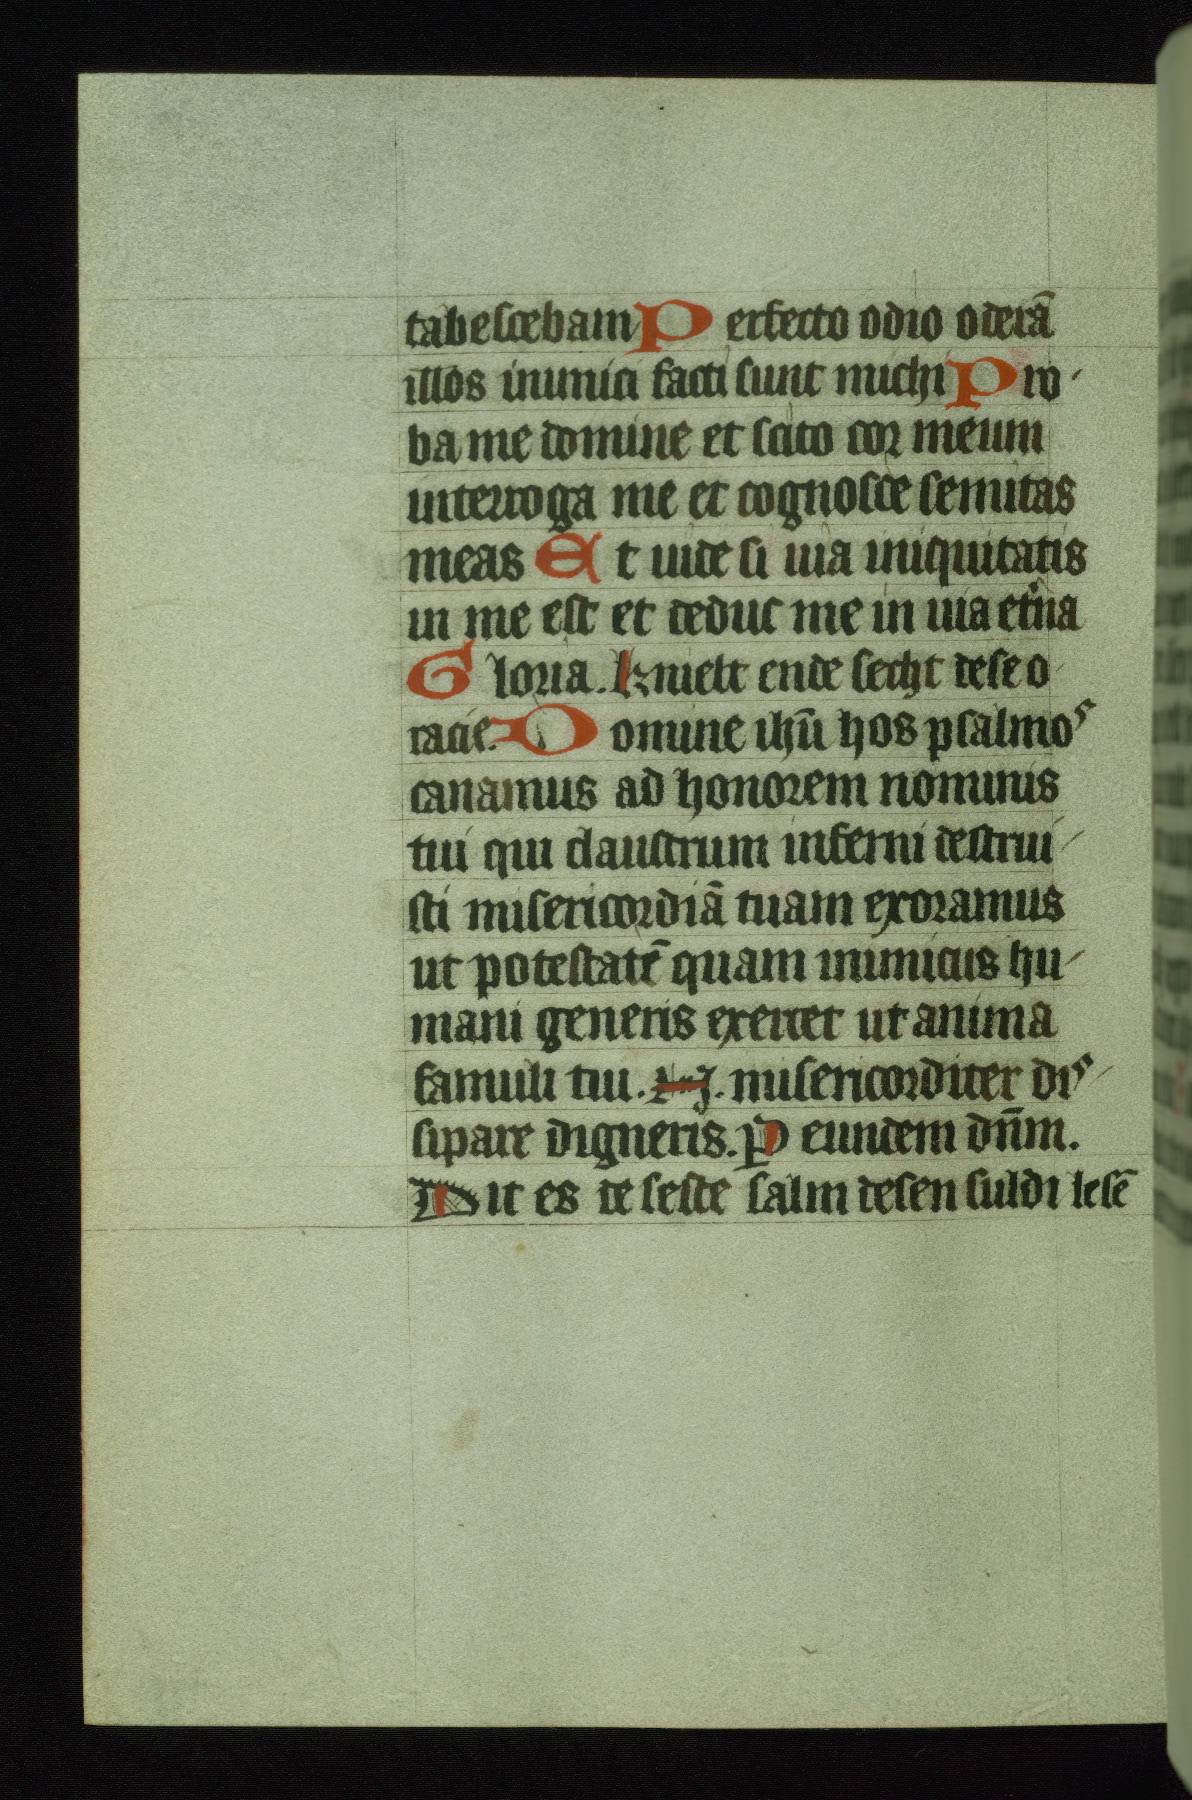 tabescebam Perfecto odio oderā
illos inimici facti sunt michi Pro-
ba me domine et scito cor meum
interroga me et cognosce semitas
meas Et uide si uia iniquitatis
in me est et deduc me in uia et̾na
Gloria. Knielt ende secht dese o
racie. Domine ihū hos psalmos
canamus ad honorem nominis
tui qui claustrum inferni destrui-
sti misericordiā tuam exoramus
ut potestatē quam inimicus hu-
mani generis exercet ut anima
famuli tui. N. misericorditer dis-
sipare digneris. P eundem dn̄m.
Dit es de seste salm desen suldi lesē